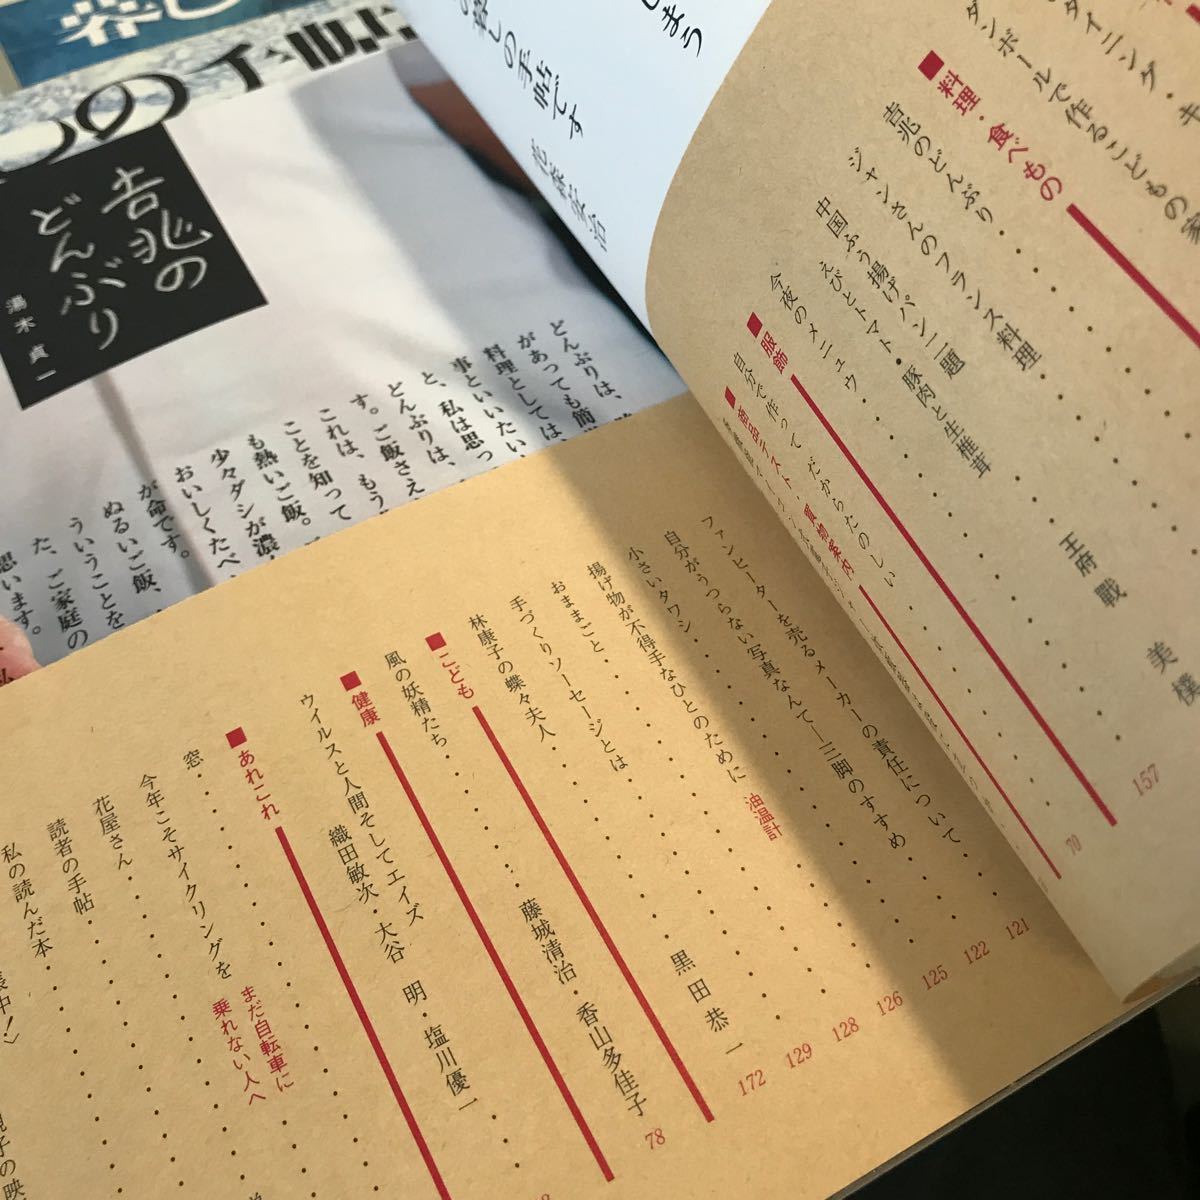 暮し
の手帖
吉兆の
どんぶり
湯木貞一
どんぶりは、
があっても簡
料理としては、
事といいたい
と、私は思っ
どんぶりは、
す。ご飯さえ
これは、もう
ことを知って
も熱いご飯。
少々ダシが濃
おいしくたべ
が命です。
ぬるいご飯、
ういうことを
た、ご家庭の
思います。
しまう
の暮しの手帖です
花森安治
ダイニング・キ
ダンボールで作るこどもの家
■料理・食べもの
吉兆のどんぶり
ジャンさんのフランス料理
中国ふう揚げパン二題
えびとトマト・豚肉と生椎茸
王府戰美樸
今夜のメニュウ
157
■服飾
自分で作って だからたのしい
70
■商品テスト・買物案内
ファンヒーターを売るメーカーの責任について
121
自分がうつらない写真なんて―三脚のすすめ
122
小さいタワシ
125
揚げ物が不得手なひとのために 油温計
126
おままごと
128
手づくりソーセージとは
129
林康子の蝶々夫人
黒田恭一
172
■こども
風の妖精たち
藤城清治・香山多佳子
78
■健康
ウイルスと人間そしてエイズ
織田敏次・大谷 明・塩川優一
■あれこれ
窓
今年こそサイクリングを まだ自転車に
乗れない人へ
花屋さん
読者の手帖
私の読んだ本